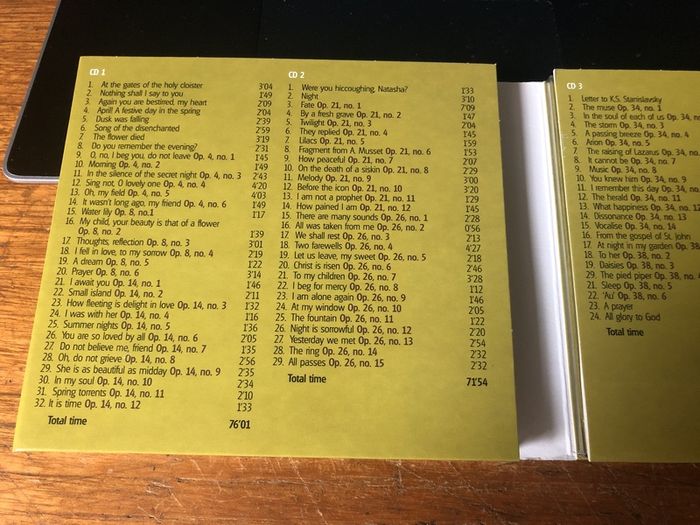 CD 1
1. At the gates of the holy cloister 3'04
2. Nothing shall I say to you 1'49
3. Again you are bestirred, my heart 2'09
4. April! A festive day in the spring 2'04
5. Dusk was falling 2'39
6. Song of the disenchanted 2'59
7. The flower died 3'19
8. Do you remember the evening? 2'31
9. O, no, I beg you, do not leave Op. 4, no. 1 1'45
10. Morning Op. 4, no. 2 1'49
11. In the silence of the secret night Op. 4, no. 3 2'43
12. Sing not, O lovely one Op. 4, no. 4 4'20
13. Oh, my field Op. 4, no. 5 4'03
14. It wasn't long ago, my friend Op. 4, no. 6 1'49
15. Water lily Op. 8, no.1 1'17
16. My child, your beauty is that of a flower
Op. 8, no. 2 1'39
17. Thoughts, reflection Op. 8, no. 3 3'01
18. I fell in love, to my sorrow Op. 8, no. 4 2'19
19. A dream Op. 8, no. 5 1'22
20. Prayer Op. 8, no. 6 3'14
21. I await you Op. 14, no. 1 1'46
22. Small island Op. 14, no. 2 2'11
23. How fleeting is delight in love Op. 14, no. 3 1'32
24. I was with her Op. 14, no. 4 1'16
25. Summer nights Op. 14, no. 5 1'36
26. You are so loved by all Op. 14, no. 6 2'05
27. Do not believe me, friend Op. 14, no. 7 1'35
28. Oh, do not grieve Op. 14, no. 8 2'56
29. She is as beautiful as midday Op. 14, no. 9 2'35
30. In my soul Op. 14, no. 10 2'34
31. Spring torrents Op. 14, no. 11 2'10
32. It is time Op. 14, no. 12 1'33
Total time 76'01
CD 2
1. Were you hiccoughing, Natasha? 1'33
2. Night 3'10
3. Fate Op. 21, no. 1 7'09
4. By a fresh grave Op. 21, no. 2 1'47
5. Twilight Op. 21, no. 3 2'04
6. They replied Op. 21, no. 4 1'45
7. Lilacs Op. 21, no. 5 1'59
8. Fragment from A. Musset Op. 21, no. 6 1'53
9. How peaceful Op. 21, no. 7 2'07
10. On the death of a siskin Op. 21, no. 8 2'29
11. Melody Op. 21, no. 9 3'00
12. Before the icon Op. 21, no. 10 3'20
13. I am not a prophet Op. 21, no. 11 1'29
14. How pained I am Op. 21, no. 12 1'45
15. There are many sounds Op. 26, no. 1 2'28
16. All was taken from me Op. 26, no. 2 0'56
17. We shall rest Op. 26, no. 3 2'13
18. Two farewells Op. 26, no. 4 4'27
19. Let us leave, my sweet Op. 26, no. 5 2'18
20. Christ is risen Op. 26, no. 6 2'46
21. To my children Op. 26, no. 7 3'28
22. I beg for mercy Op. 26, no. 8 1'12
23. I am alone again Op. 26, no. 9 1'46
24. At my window Op. 26, no. 10 2'05
25. The fountain Op. 26, no. 11 1'22
26. Night is sorrowful Op. 26, no. 12 2'20
27. Yesterday we met Op. 26, no. 13 2'54
28. The ring Op. 26, no. 14 2'32
29. All passes Op. 26, no. 15 2'32
Total time 71'54
CD 3
1. Letter to K.S. Stanislavsky
2. The muse Op. 34, no. 1
3. In the soul of each of us Op. 34, n
4. The storm Op. 34, no. 3
5. A passing breeze Op. 34, no. 4
6. Arion Op. 34, no. 5
7. The raising of Lazarus Op. 34, no.
8. It cannot be Op. 34, no. 7
9. Music Op. 34, no. 8
10. You knew him Op. 34, no. 9
11. I remember this day Op. 34, no
12. The herald Op. 34, no. 11
13. What happiness Op. 34, no. 12
14. Dissonance Op. 34, no. 13
15. Vocalise Op. 34, no. 14
16. From the gospel of St. John
17. At night in my garden Op. 38
18. To her Op. 38, no. 2
19. Daisies Op. 38, no. 3
20. The pied piper Op. 38, no. 4
21. Sleep Op. 38, no. 5
22. 'Au' Op. 38, no. 6
23. A prayer
24. All glory to God
Total time